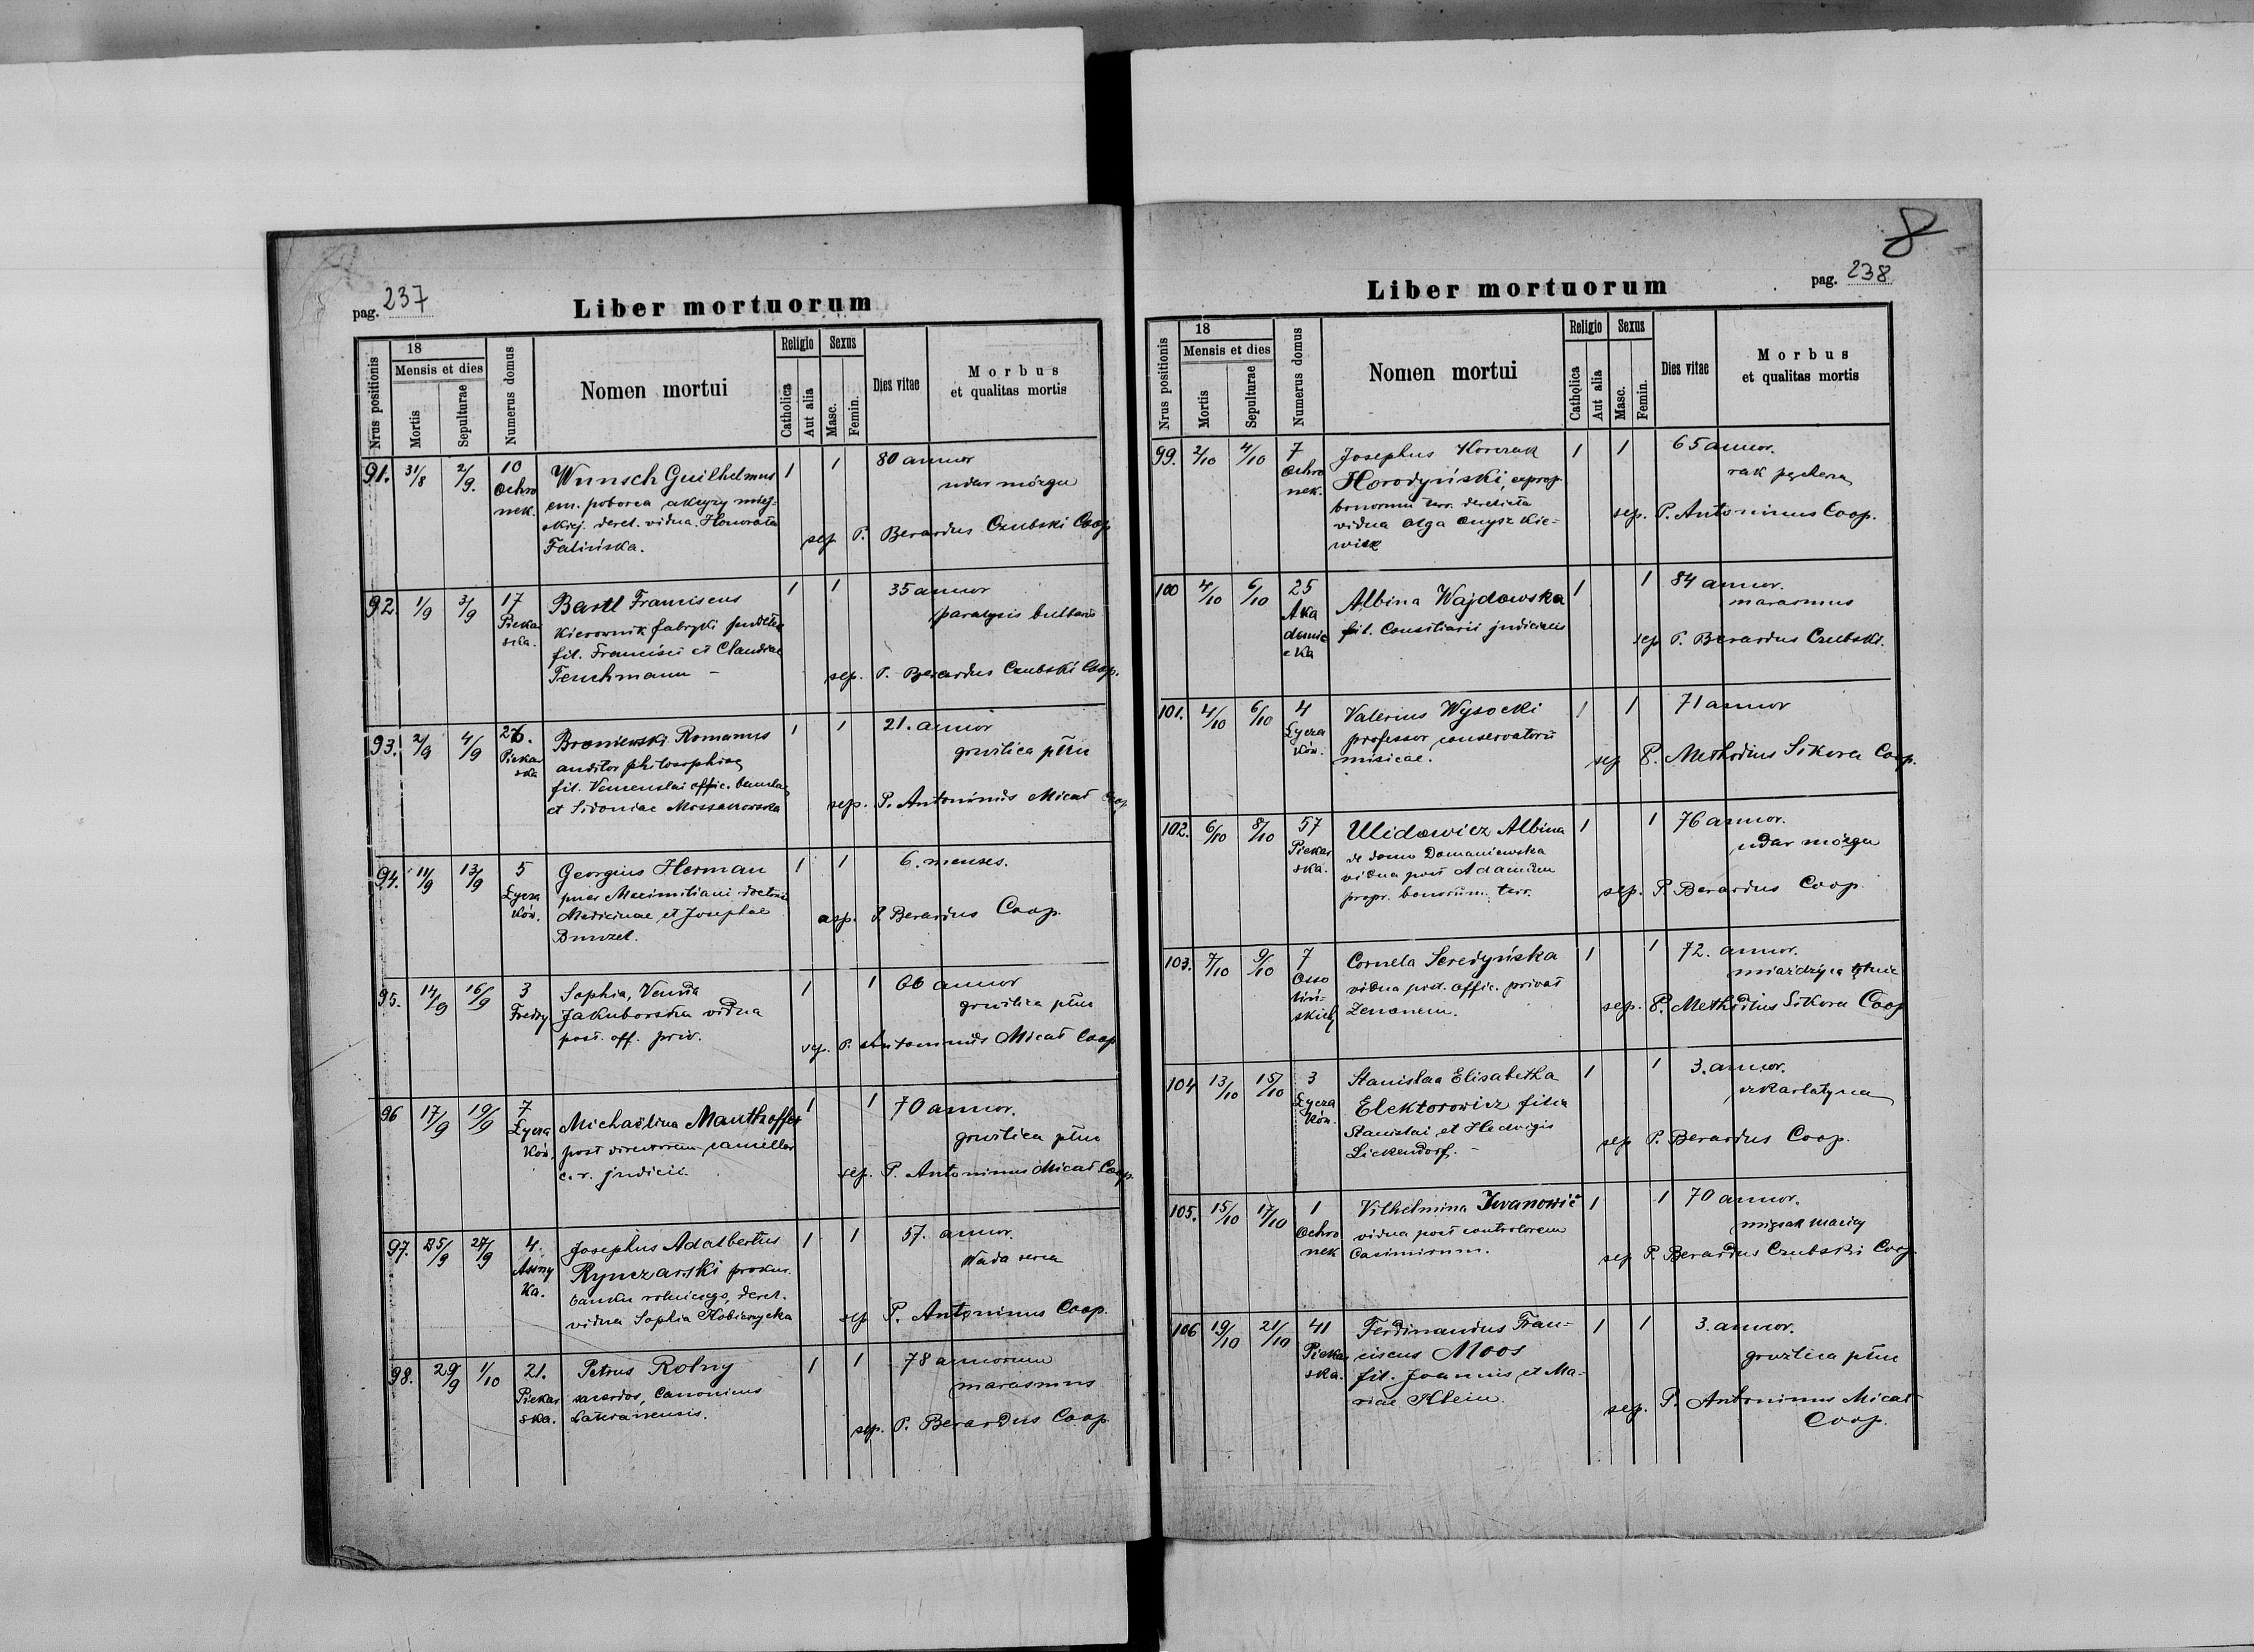 pag. 237
Liber mortuorum
Nrus positionis
18
Mensis et dies
Mortis
Sepulturae
Numerus domus
Nomen mortui
Religio
Catholica
Aut alia
Sexus
Masc.
Femin.
Dies vitae
Morbus
et qualitas mortis
91. 31/8 2/9. 10 Wunsch Guilhelmus 1 1 80 annor
Ochro em. poborca akcyzy miej- udar mózgu
nek. skiej. derel. vidua. Honorata
Falińska. sep. P. Berardus Czubski Coop.
92. 1/9 3/9 17 Bartl Franciscus 1 1 35 annor
Piekar kierownik fabryki pudełek paralysis bulbaris
ska. fil. Francisci et Claudiae
Teuchmann - sep. P. Berardus Czubski Coop.
93. 2/9 4/9 26. Broniewski Romanus 1 1 21. annor
Piekar auditor philosophiae gruźlica płuc
ska fil. Venceslai offic.
et Sidoniae Mossakowska sep. P. Antoninus Micał Coop.
94. 11/9 13/9 5 Georgius Herman 1 1 6. menses.
Łycza puer Maximiliani doctoris
ków. Medicinae et Josephae asp. P. Berardus Coop.
95. 14/9 16/9 3 Sophia, Venda 1 1 66 annor
Fredry Jakuborska vidua gruźlica płuc
post. off. priv. sep. P. Antoninus Micał Coop
96 17/9 19/9 7 Michaëlina Manthoffer 1 1 70 annor.
Łycza post directorem cancellar gruźlica płuc
ków. c. r. judicii. sep. P. Antoninus Micał Coop.
97. 25/9 27/9 4. Josephus Adalbertus 1 1 57. annor.
Asny Rynczarski prokur. Wada serca
ka. banku rolniczego, derel.
vidua Sophia Kobierzycka sep P. Antoninus Coop.
98. 29/9 1/10 21. Petrus Rolny 1 1 78 annorum
Piekar sacerdos, Canonicus marasmus
ska. Lateranensis. sep. P. Berardus Coop.
8
pag. 238
Liber mortuorum
Nrus positionis
18
Mensis et dies
Mortis
Sepulturae
Numerus domus
Nomen mortui
Religio
Catholica
Aut alia
Sexus
Masc.
Femin.
Dies vitae
Morbus
et qualitas mortis
99. 2/10 4/10 7 Josephus Korczak 1 1 65 annor.
Ochro Horodyński, exprop. rak pęcherza
nek. bonorum terr. derelicta sep. P. Antoninus Coop.
vidua Olga Onyszkie-
wicz
100 4/10 6/10 25 Albina Wajdowska 1 1 84 annor.
Aka fil. Consiliarii judicialis marasmus
demic sep P. Berardus Czubski.
cka
101. 4/10 6/10 4 Valerius Wysocki 1 1 71 annor
Łycza professor conservatorii
ków. misicae. sep P. Methodius Sikora Coop.
102. 6/10 8/10 57 Ulidowicz Albina 1 1 76 annor.
Piekar de domo Domaniewska udar mózgu
ska. vidua post Adamum
propr. bonorum. terr. sep. P Berardus Coop.
103. 7/10 9/10 7 Cornela Seredyńska 1 1 72. annor.
Osso vidua post. offic. privat miażdżyca tętnic
liń- Zenonem. sep. P. Methodius Sikora Coop
skich
104 13/10 15/10 3 Stanislaa Elisabetha 1 1 3. annor.
Łycza Elektorowicz filia szkarlatyna
ków. Stanislai et Hedvigis sep P. Berardus Coop.
Lickendorf. -
105. 15/10 17/10 1 Vilhelmina Iwanowić 1 1 70 annor.
Ochro vidua post controlorem mięsak macicy
nek Casimirum. sep P. Berardus Czubski Coop.
106 19/10 21/10 41 Ferdinandus Fran- 1 1 3. annor.
Piekar ciscus Moos gruźlica płuc
ska. fil. Joannis et Ma-
riae Klein. sep. P. Antoninus Micał
Coop.